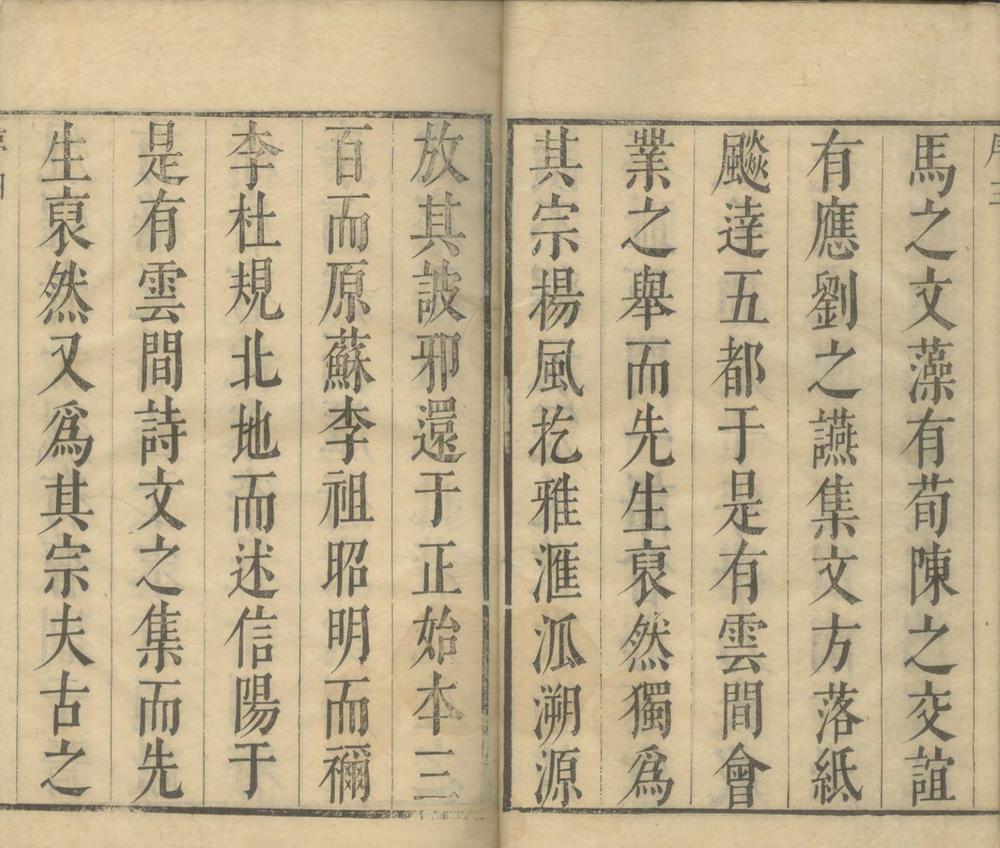 馬之文藻有荀陳之交誼
有應劉之讌集文方落紙
飈達五都于是有雲間會
業之舉而先生裒然獨爲
其宗揚風扢雅滙泒溯源
放其詖邪還于正始本三
百而原蘇李祖昭明而禰
李杜規北地而述信陽于
是有雲間詩文之集而先
生裒然又爲其宗夫古之